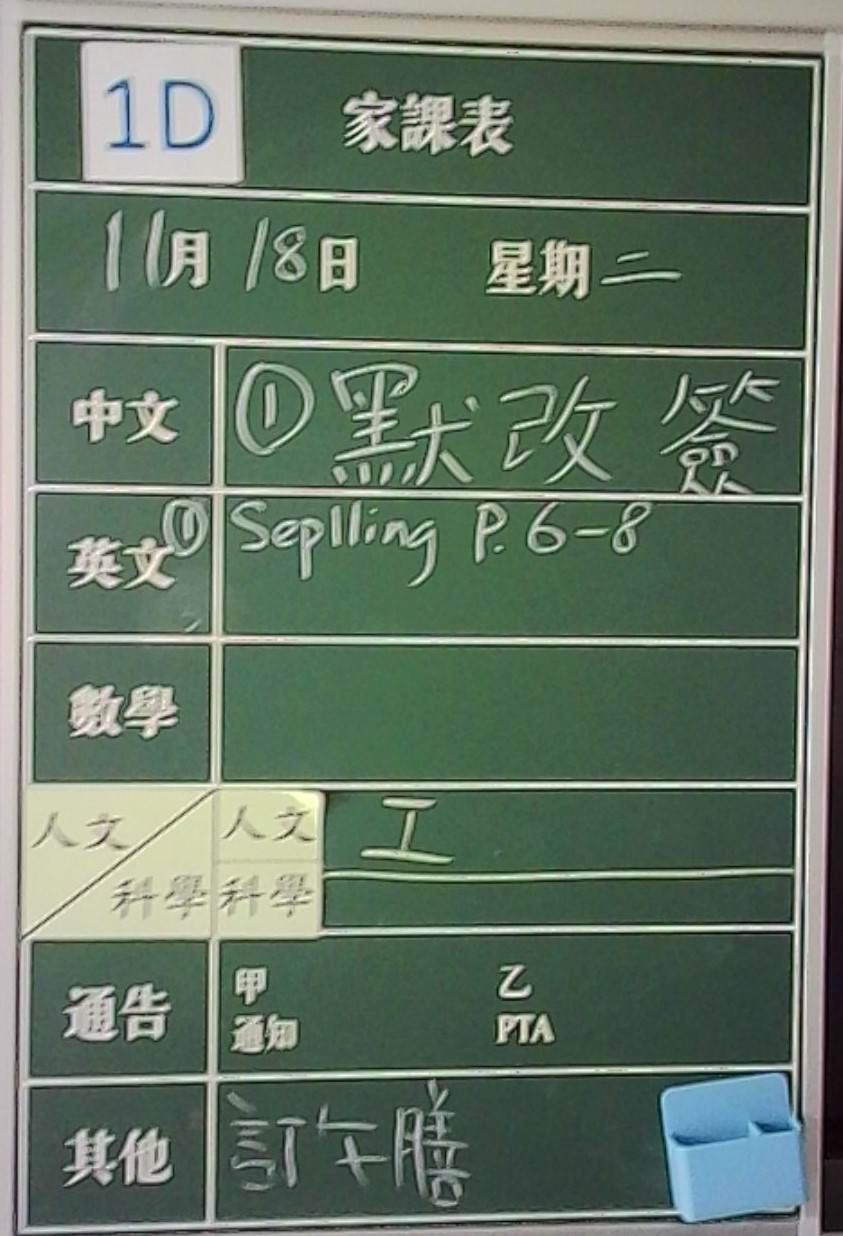 1D 家課表
11月18日 星期二
中文 ①默改 簽
英文 ① Seplling P. 6-8
數學
人文 人文 工
科學 科學
通告 甲 乙
通知 PTA
其他 訂午膳